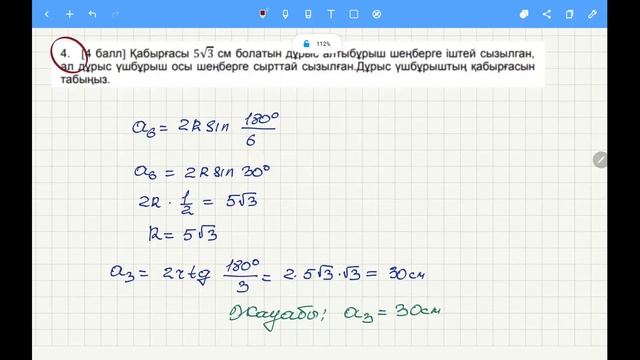 112%
4. [4 балл] Қабырғасы 5√3 см болатын дұрыс алтыбұрыш шеңберге іштей сызылған,
ал дұрыс үшбұрыш осы шеңберге сырттай сызылған.Дұрыс үшбұрыштың қабырғасын
табыңыз.
a₆ = 2R sin 180°/6
a₆ = 2R sin 30°
2R · 1/2 = 5√3
R = 5√3
a₃ = 2r tg 180°/3 = 2·5√3·√3 = 30см
Жауабы: a₃ = 30см